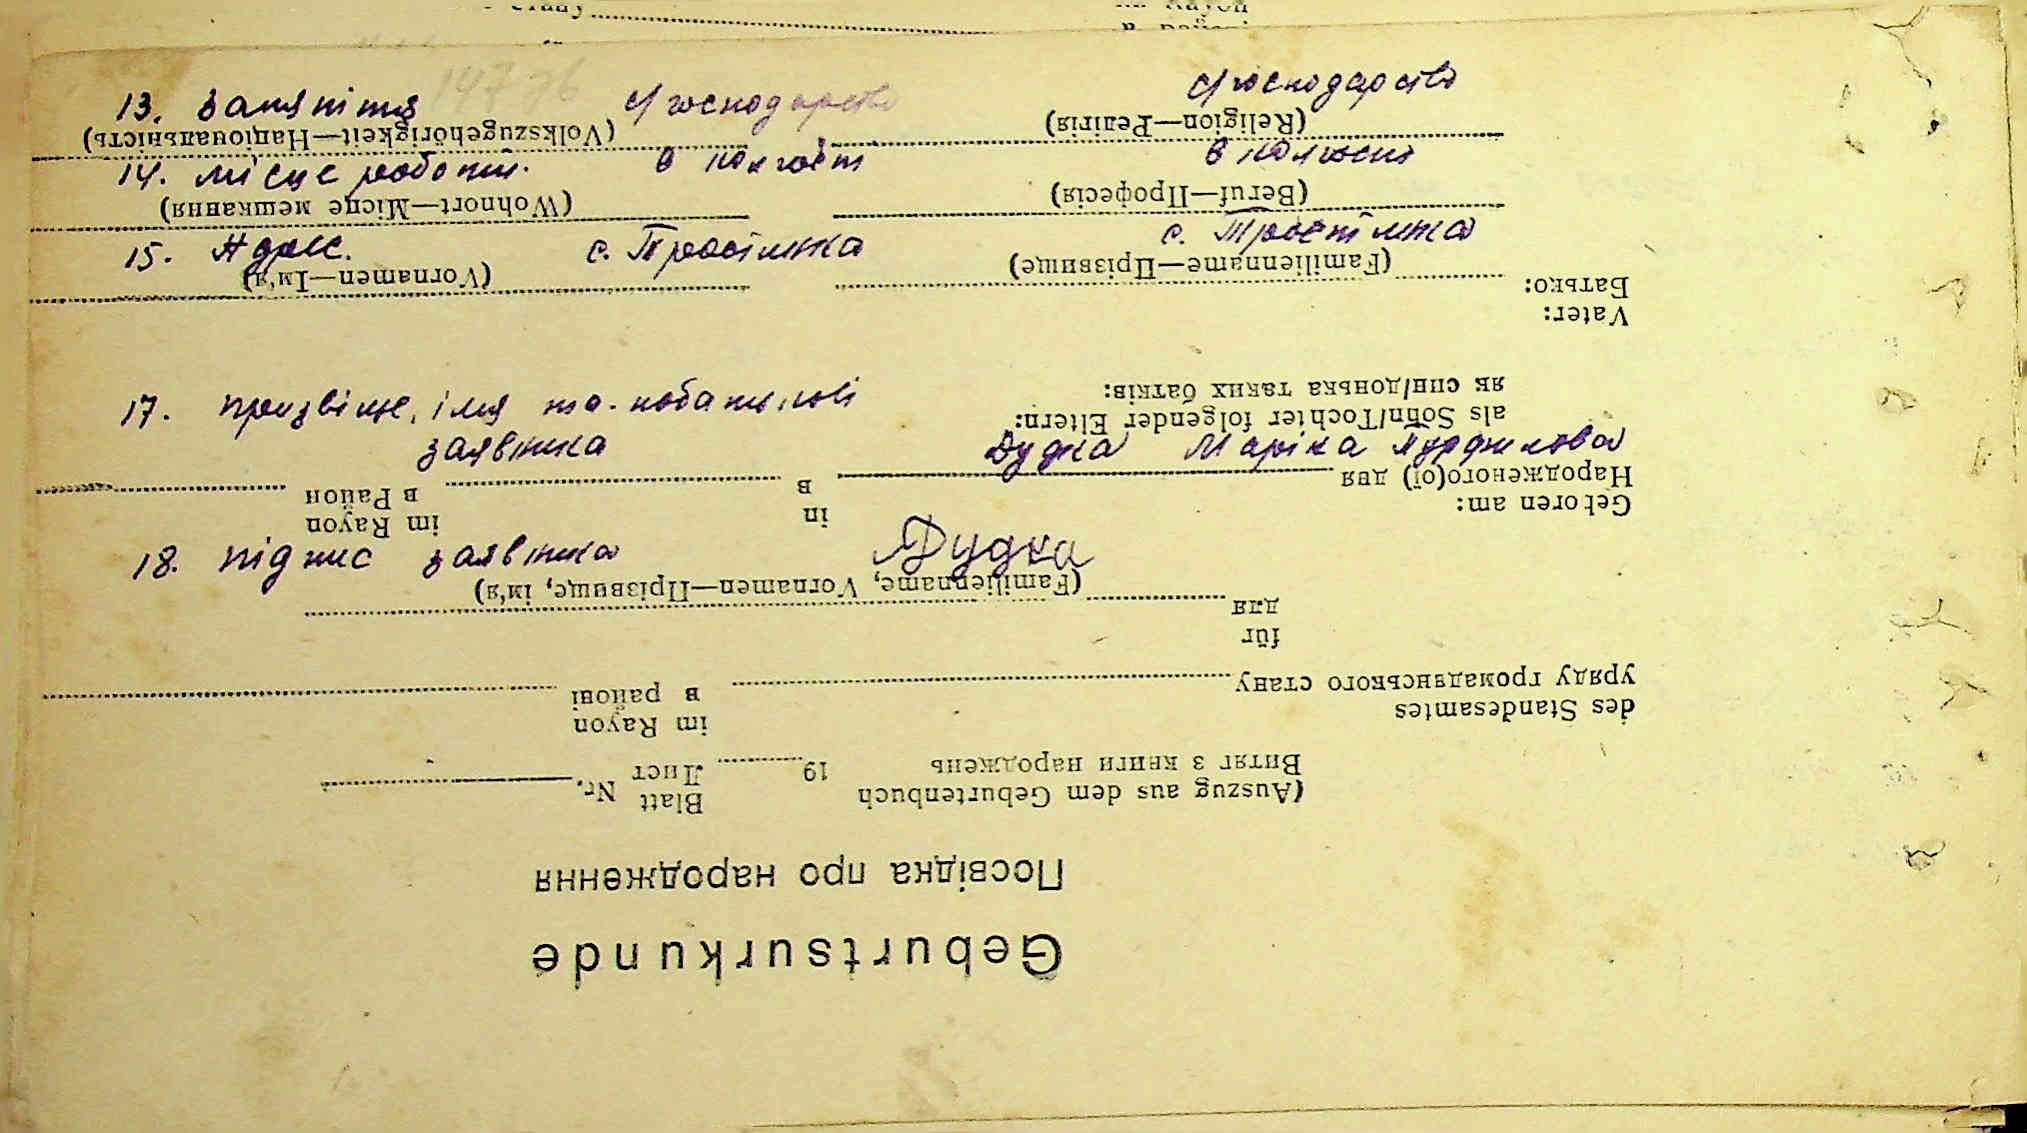 13. Заняття с/господарство с/господарство
14. Місце роботи. в колгоспі в колгоспі
15. Адрес. с. Тростінка с. Тростінка
17. призвіще, імя та по батькові
заявника Дудка Марія
18. підпис заявника Дудка
Geburtsurkunde
Посвідка про народження
(Auszug aus dem Geburtenbuch 19 Blatt Nr.
Витяг з книги народжень Лист
des Standesamtes im Rayon
уряду громадянського стану в районі
für
для
(Familienname, Vornamen—Прізвище, ім'я)
Geboren am: in im Rayon
Народженого(ої) дня в в Район
als Sohn/Tochter folgender Eltern:
як син/донька таких батків:
Vater:
Батько:
(Familienname—Прізвище) (Vornamen—Ім'я)
(Beruf—Професія) (Wohnort—Місце мешкання)
(Religion—Релігія) (Volkszugehörigkeit—Національність)